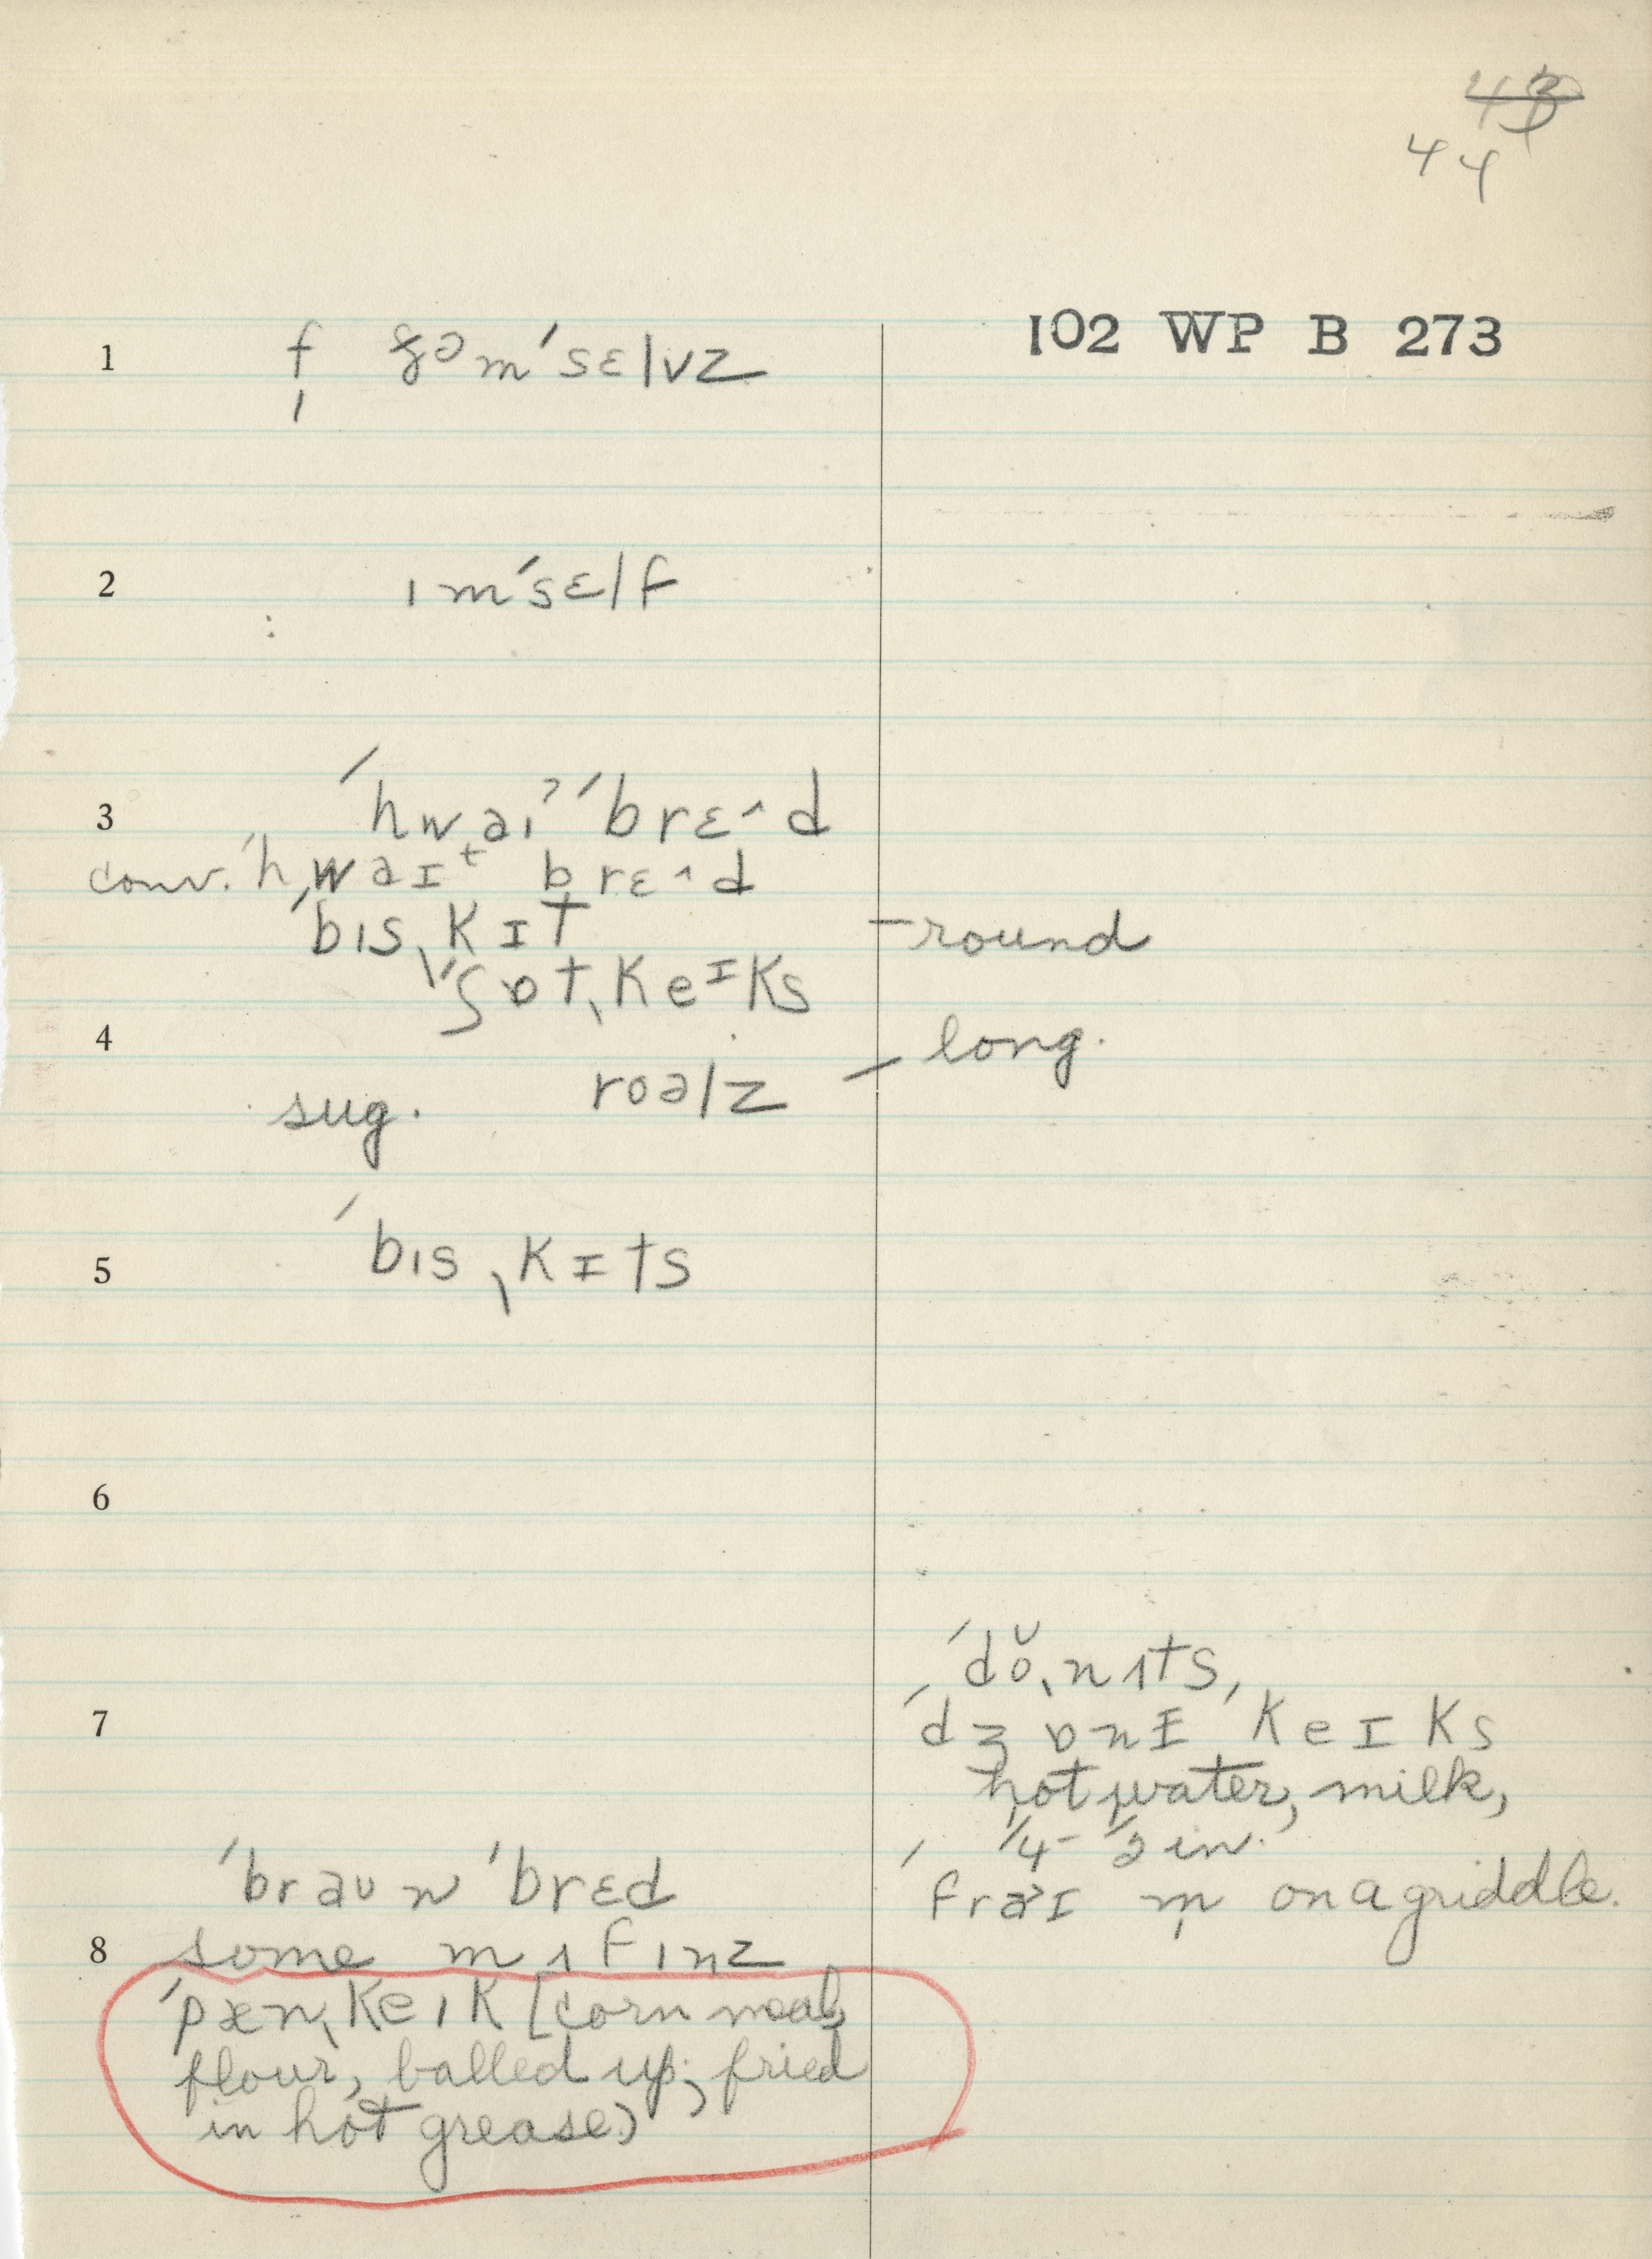 4̶3̶
44
102 WP B 273
1 f ðəm ˈsɛlvz
2 ɪm ˈsɛlf
3 ˈhwaɪˀ ˈbrɛ^d
conv. ˈhwaɪt brɛ^d
ˈbɪsˌkɪt – round
ˈʃɒtˌkeɪks
4 sug. roəlz – long.
5 ˈbɪsˌkɪts
6
7 ˈdoˌnʌts,
ˈdʒɒnɪˈkeɪks
hot water, milk,
1/4 – 1/2 in.
ˈfraɪ m̩ on a griddle.
ˈbraʊn ˈbrɛd
8 some mʌfɪnz
ˈpænˌkeɪk [corn meal,
flour, balled up; fried
in hot grease)